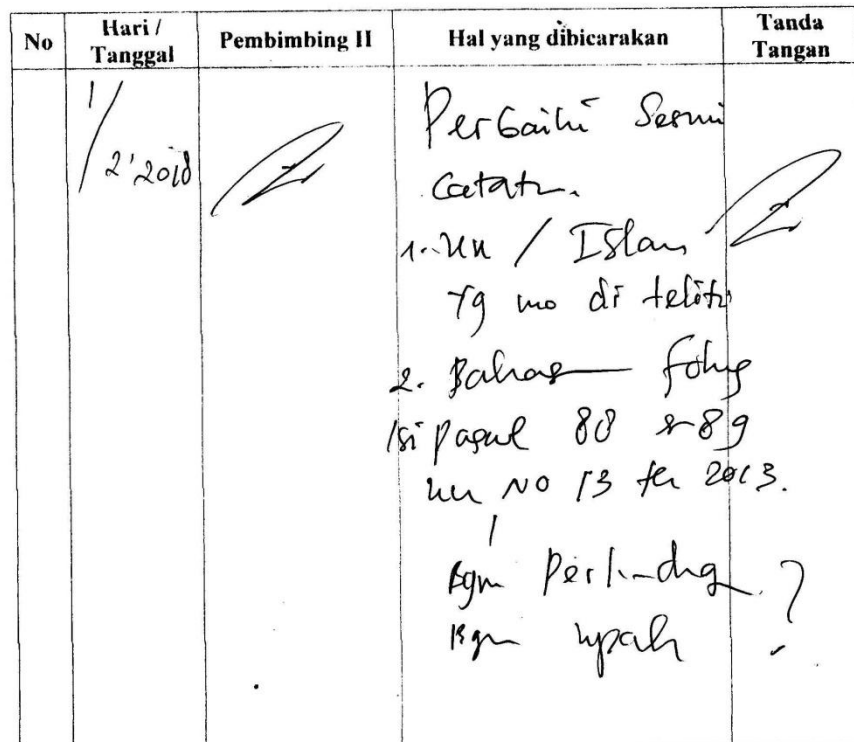 No Hari / Tanggal Pembimbing II Hal yang dibicarakan Tanda Tangan
1/2'2018
Perbaiki Sesuai
Catatn.
1. UU / Islam
yg mo di teliti
2. Bahas fokus
isi pasal 88 & 89
UU NO 13 th 2013.
Bgm Perlindug
Bgm upah ?